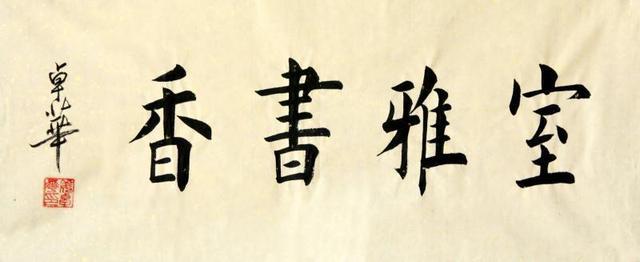 室雅書香
卓華